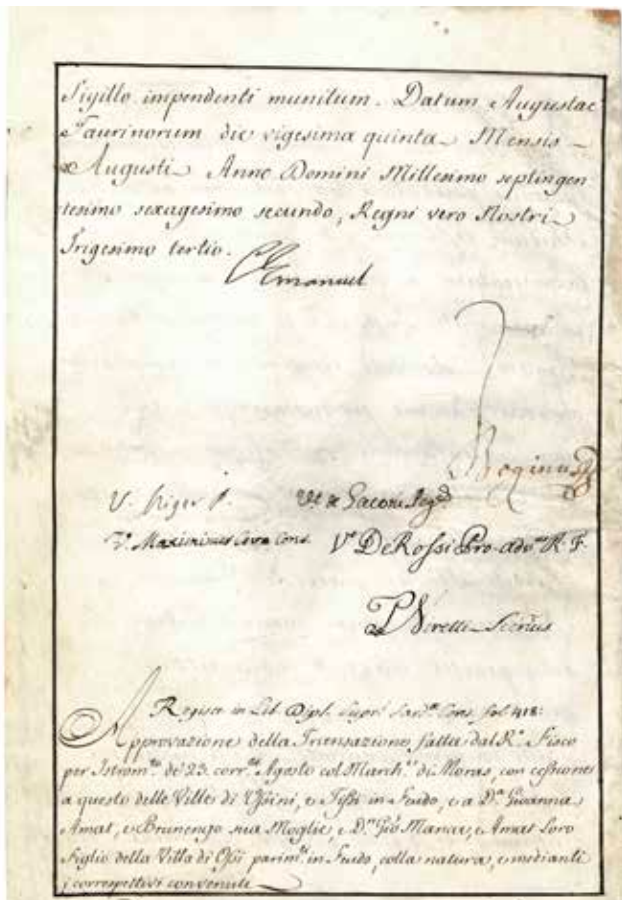 Sigillo impendenti munitum. Datum Augustae
Taurinorum die vigesima quinta Mensis
Augusti Anno Domini Millesimo septingen
tesimo sexagesimo secundo, Regni vero Nostri
Trigesimo tertio.
CEmanuel
Boginus
V. Niger P. Vt. de Gaconi Regs
V. Maximinus Ceva Cons. Vt DeRossi Pro-advus R. F.
P Nerelli Secrius
Regista in Lib. Dipl. Supri Sardae Cons. fol 418:
Approvazione della Transazione fatta dal Ro. Fisco
per Istromto de' 23. corrte Agosto col Marche. di Moras, con cessione
a questo delle Ville di Usini, e Tissi in Feudo, e a Da. Giovanna
Amat, e Brunengo sua Moglie, e Dn. Gio Manca, e Amat Loro
Figlio della Villa di Ossi parimte. in Feudo, colla natura, e medianti
i correspettivi convenuti